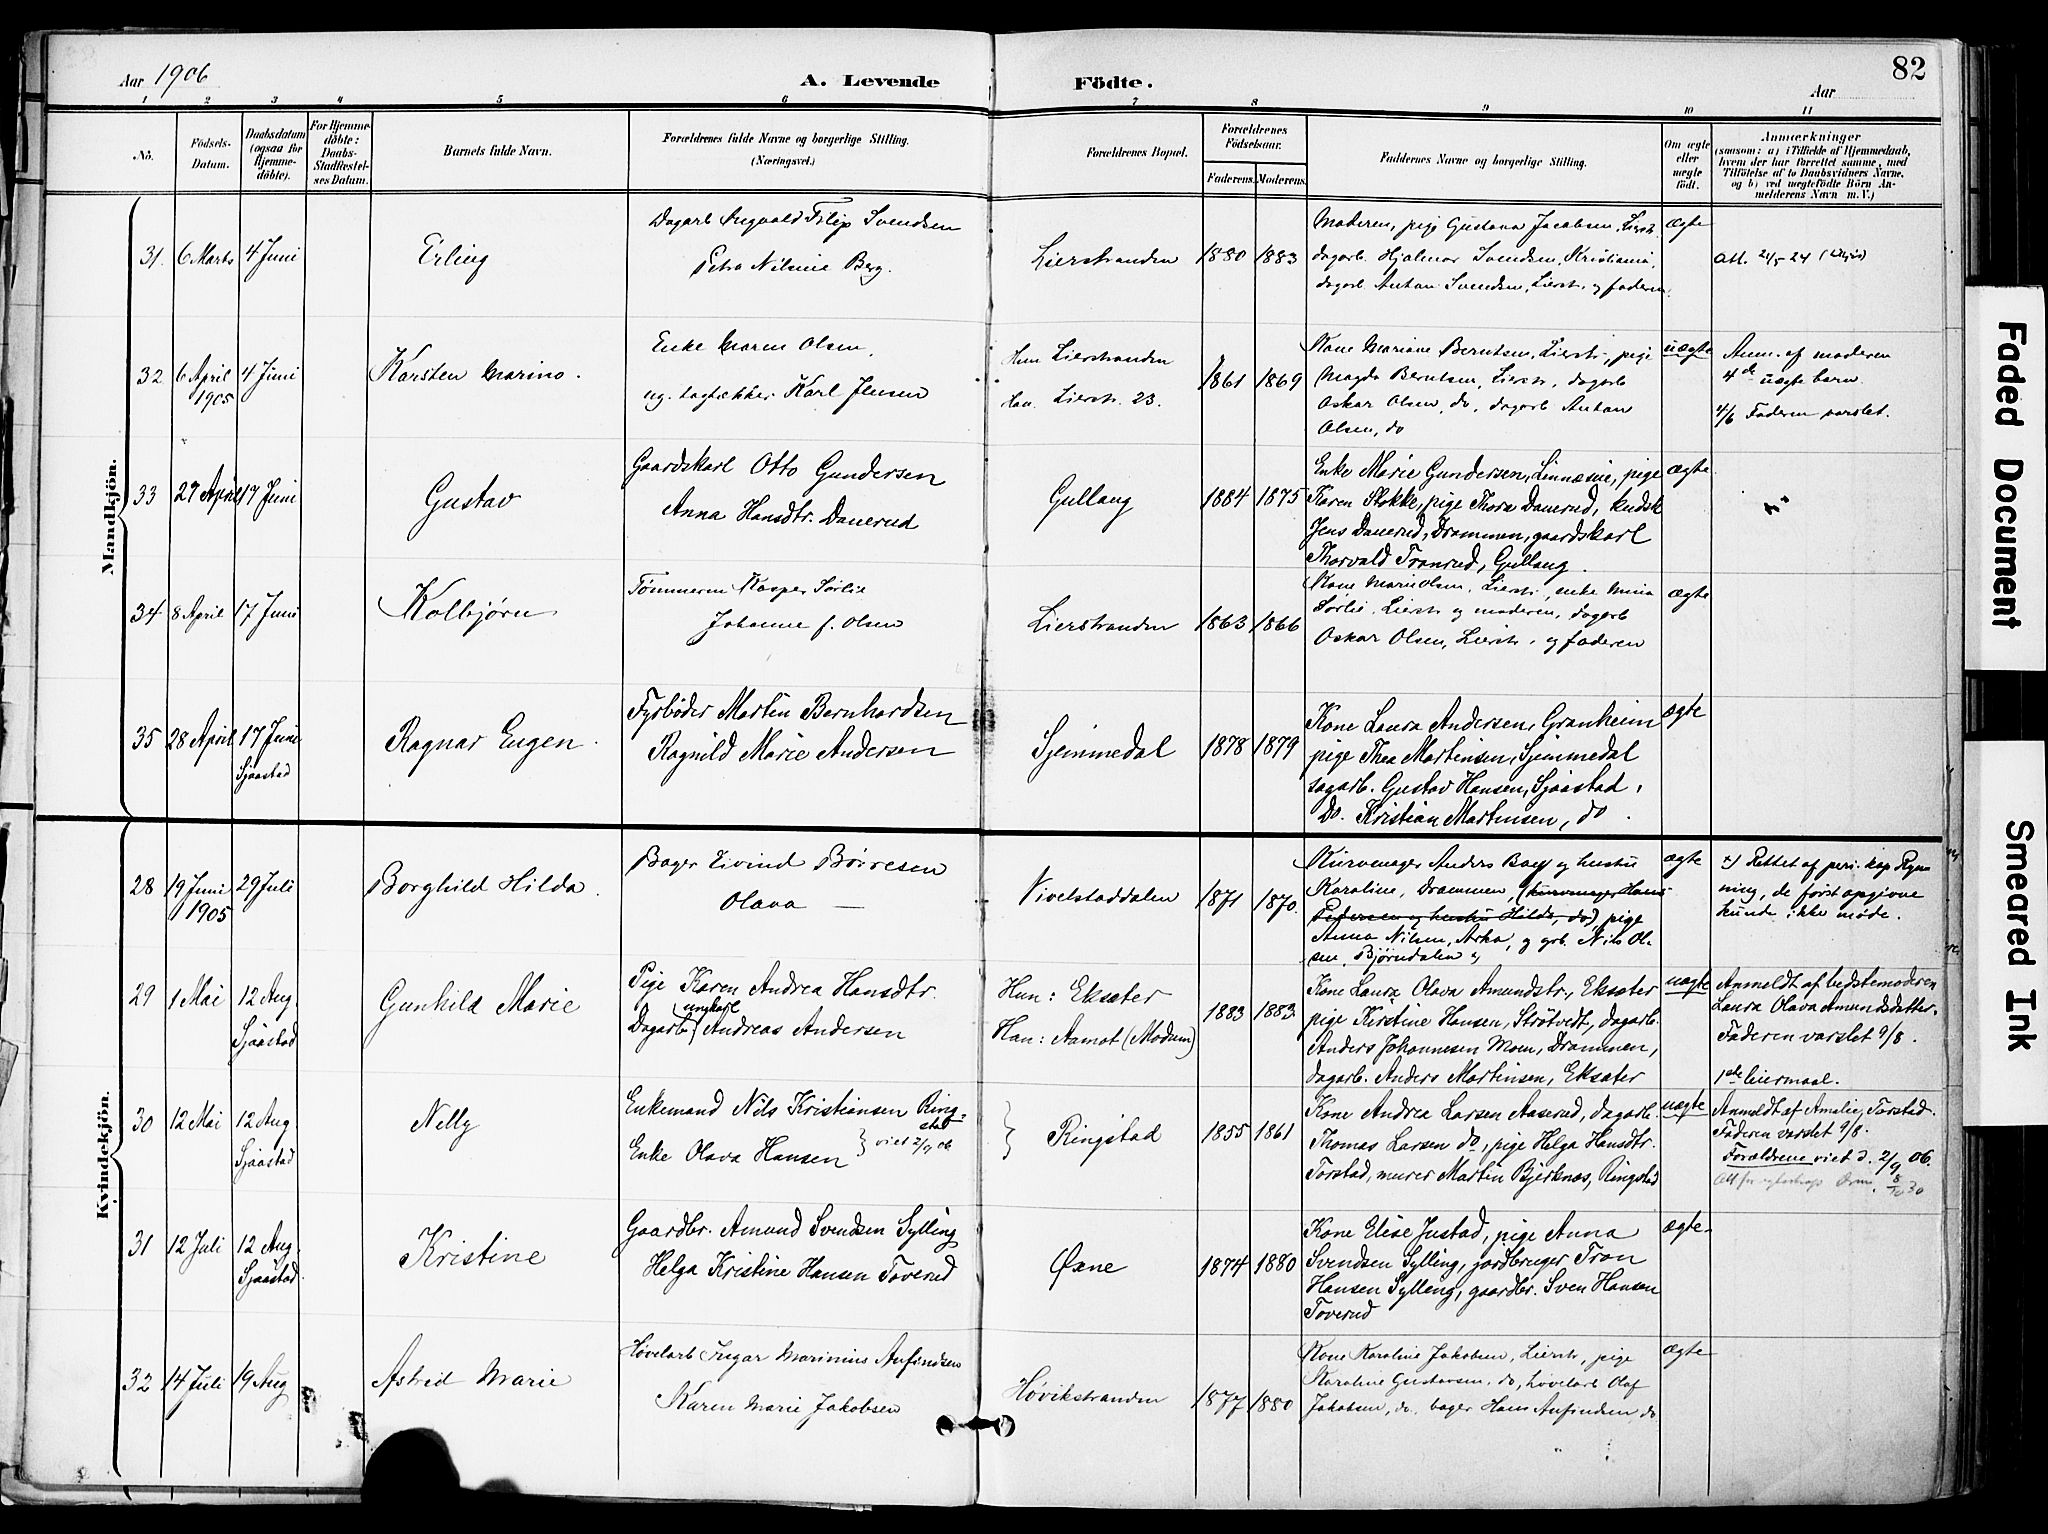 82
Aar 1906
A. Levende Födte.
Aar
1 2 3 4 5 6 7 8 9 10 11
No.
Födsels-Datum.
Daabsdatum (ogsaa for Hjemme-döbte).
For Hjemme-döbte: Daabs-Stadfæstel-ses Datum.
Barnets fulde Navn.
Forældrenes fulde Navne og borgerlige Stilling.
(Næringsvei.)
Forældrenes Bopæl.
Forældrenes Födselsaar.
Faderens. Moderens.
Faddernes Navne og borgerlige Stilling.
Om ægte eller uægte födt.
Anmærkninger
(saasom: a) i Tilfælde af Hjemmedaab,
hvem der har forrettet samme, med
Tilföielse af to Daabsvidners Navne,
og b) ved uægtefödte Börn An-
melderens Navn m. V.)
Mandkjön.
31. 6 Marts 4 Juni
Erling
Dagarb. Ingvald Filip Svendsen
Petra Nilsine Berg.
Lierstranden
1880 1883
Moderen, pige Gustava Jacobsen, Lierst.
dagarb. Hjalmar Svendsen, Kristiania,
dagarb. Anton Svendsen, Lierst. og faderen.
ægte
Att. 24/5-24
32 6 April 1905 4 Juni
Karsten Marino.
Enke Maren Olsen,
ug. tagtækker Karl Jensen
Hun Lierstranden
Han. Lierstr. 23.
1861 1869
Kone Mariane Berntsen, Lierstr., pige
Magda Berntsen, Lierstr., dagarb
Oskar Olsen, do, dagarb Anton
Olsen, do
uægte
Anm. af moderen
4de uægte barn.
4/6 Faderen varslet.
33 27 April 17 Juni
Gustav
Gaardskarl Otto Gundersen
Anna Hansdtr. Danerud
Gullaug
1884 1875
Enke Marie Gundersen, Linnæsie, pige
Karen Stokke, pige Thora Danerud, kudsk
Jens Danerud, Drammen, gaardskarl
Thorvald Tranrud, Gullaug.
ægte
34 8 April 17 Juni
Kolbjørn
Tømmerm Kasper Sørlie
Johanne f. Olsen
Lierstranden
1863 1866
Kone Marie Olsen, Lierstr, enke Mina
Sørlie, Lierstr og moderen, dagarb
Oskar Olsen, Lierstr. og faderen
ægte
35 28 April 17 Juni Sjåastad
Ragnar Eugen.
Fyrbøder Martin Bernhardsen
Ragnild Marie Andersen
Sjemmedal
1878 1879
Kone Laura Andersen, Granheim
pige Thea Martinsen, Sjemmedal
sagarb. Gustav Hansen, Sjåastad,
Do. Kristian Martinsen, do.
ægte
Kvindekjön.
28 19 Juni 1905 29 Juli
Borghild Hilda.
Bager Eivind Børresen
Olava —
Nivelstaddalen
1871 1870.
Kurvmager Anders Boey og hustru
Karoline, Drammen, (kurvmager Hans
Pedersen og hustru Hilda, do), pige
Anna Nilsen, Asker, og grb. Nils Ol-
sen, Bjørndalen
ægte
Rettet af pers. kap Ryn-
ning, de først opgivne
kunde ikke møde.
29 1 Mai 12 Aug Sjåastad
Gunhild Marie
Pige Karen Andrea Hansdtr.
og ungkarl
Dagarb. Andreas Andersen
Hun: Eksæter
Han: Aamot (Modum)
1883 1883
Kone Laura Olava Amundstr., Eksæter
pige Kirstine Hansen, Strøtvedt, dagarb.
Anders Johannesen Moen, Drammen,
dagarb. Anders Martinsen, Eksæter
uægte
Anmeldt af bedstemoderen
Laura Olava Amundsdatter.
Faderen varslet 9/8.
1ste leiermaal.
30 12 Mai 12 Aug Sjåastad
Nelly
Enkemand Nils Kristiansen Ring-
stad
Enke Olava Hansen
viet 2/9 06
Ringstad
1855 1861
Kone Andrea Larsen Aaserud, dagarb.
Thomas Larsen do, pige Helga Hansdtr.
Torstad, murer Martin Bjerknæs, Ringstad
uægte
Anmeldt af Amalie Torstad.
Faderen varslet 9/8.
Forældrene viet d. 2/9 06.
31 12 Juli 12 Aug. Sjåastad
Kristine
Gaardbr. Amund Svendsen Sylling
Helga Kristine Hansen Toverud
Øxne
1874 1880
Kone Elise Justad, pige Anna
Svendsen Sylling, jordbruger Tron
Hansen Sylling, gaardbr. Sven Hansen
Toverud
ægte
32 14 Juli 19 Aug
Astrid Marie
Høvelarb Ingar Marinius Anfindsen
Karen Marie Jakobsen
Høvikstranden
1877 1880
Kone Karoline Jakobsen, Lierstr, pige
Karoline Gustavsen, do, høvelarb Olaf
Jakobsen, do. bager Hans Anfindsen, do
ægte
Faded Document
Smeared Ink